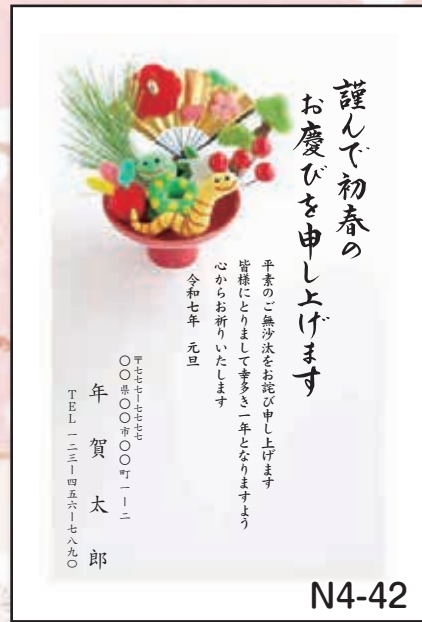 謹んで初春の
お慶びを申し上げます
平素のご無沙汰をお詫び申し上げます
皆様にとりまして幸多き一年となりますよう
心からお祈りいたします
令和七年 元旦
〒七七七ー七七七七
〇〇県〇〇市〇〇町一ー二
年賀太郎
TEL 一二三ー四五六ー七八九〇
N4-42